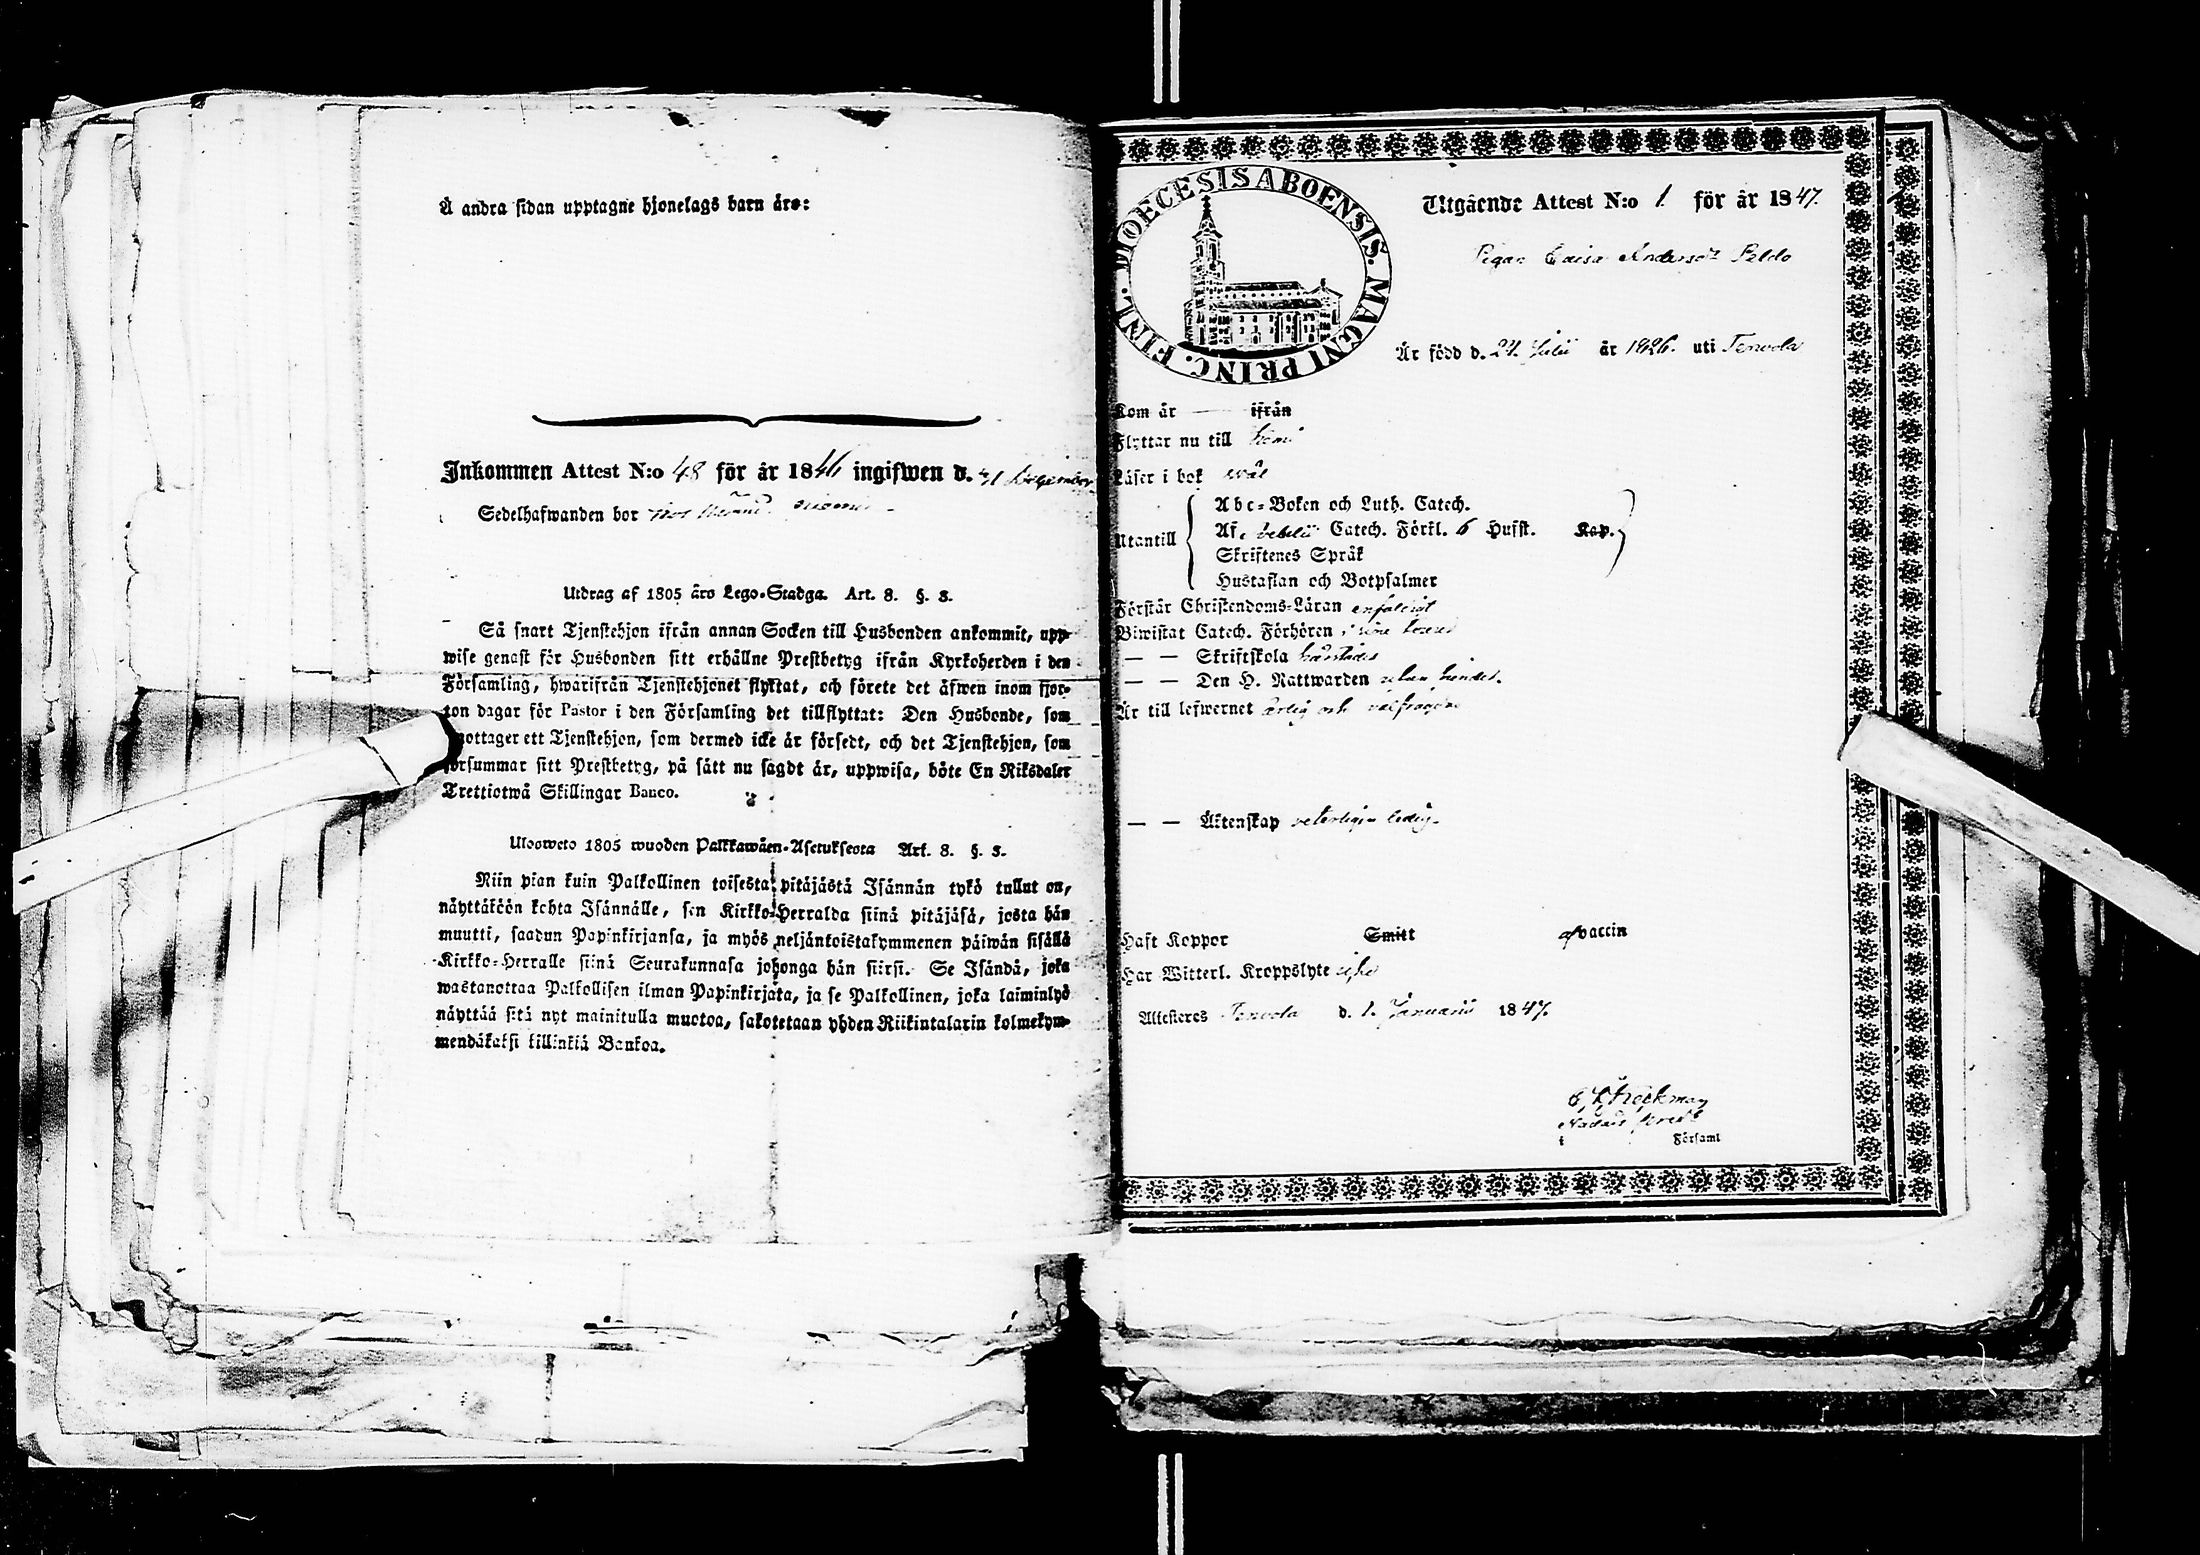 Å andra sidan upptagne hjonelags barn äro:
Inkommen Attest N:o 48 för år 1846 ingifwen d. 31 December
Sedelhafwanden bor
Utdrag af 1805 års Lego-Stadga. Art. 8. §. 3.
Så snart Tjenstehjon ifrån annan Socken till Husbonden ankommit, upp-
wise genast för Husbonden sitt erhållne Prestbetyg ifrån Kyrkoherden i den
Församling, hwarifrån Tjenstehjonet flyttat, och förete det äfwen inom fjor-
ton dagar för Pastor i den Församling det tillflyttat: Den Husbonde, som
mottager ett Tjenstehjon, som dermed icke är försedt, och det Tjenstehjon, som
försummar sitt Prestbetyg, på sätt nu sagdt är, uppwisa, böte En Riksdaler
Trettiotwå Skillingar Banco.
Ulosweto 1805 wuoden Palkkawäen-Asetuksesta Art. 8. §. 3.
Niin pian kuin Palkollinen toisesta pitäjästä Isännän tykö tullut on,
näyttäköön kohta Isännälle, sen Kirkko-Herralda siinä pitäjäsä, josta hän
muutti, saadun Papinkirjansa, ja myös neljäntoistakymmenen päiwän sisällä
Kirkko-Herralle siinä Seurakunnasa johonga hän siirsi. Se Isändä, joka
wastanottaa Palkollisen ilman Papinkirjata, ja se Palkollinen, joka laiminlyö
näyttää sitä nyt mainitulla muotoa, sakotetaan yhden Riikintalarin kolmekym-
mendäkaksi killinkiä Bankoa.
DIOECESIS ABOENSIS. MAGNI PRINC. FINL.
Utgående Attest N:o 1. för år 1847.
Pigan Caisa Andersdr Peldo
Är född d. 24. Julii år 1826. uti Terwola
Kom år — ifrån
Flyttar nu till Kemi
Läser i bok wäl
Utantill
Abc-Boken och Luth. Catech.
Af Catech. Förkl. 6 Hufst. Kap.
Skriftenes Språk
Hustaflan och Botpsalmer
Förstår Christendoms-Läran enfaldigt
Biwistat Catech. Förhören
— — Skriftskola härstädes
— — Den H. Nattwarden utan hinder.
Är till lefwernet ärlig och välfrägdad
— — Äktenskap veterligen ledig.
Haft Koppor Smitt af vaccin
Har Witterl. Kroppslyte icke
Attesteras Terwola d. 1. Januarii 1847.
Heckman
i Församl